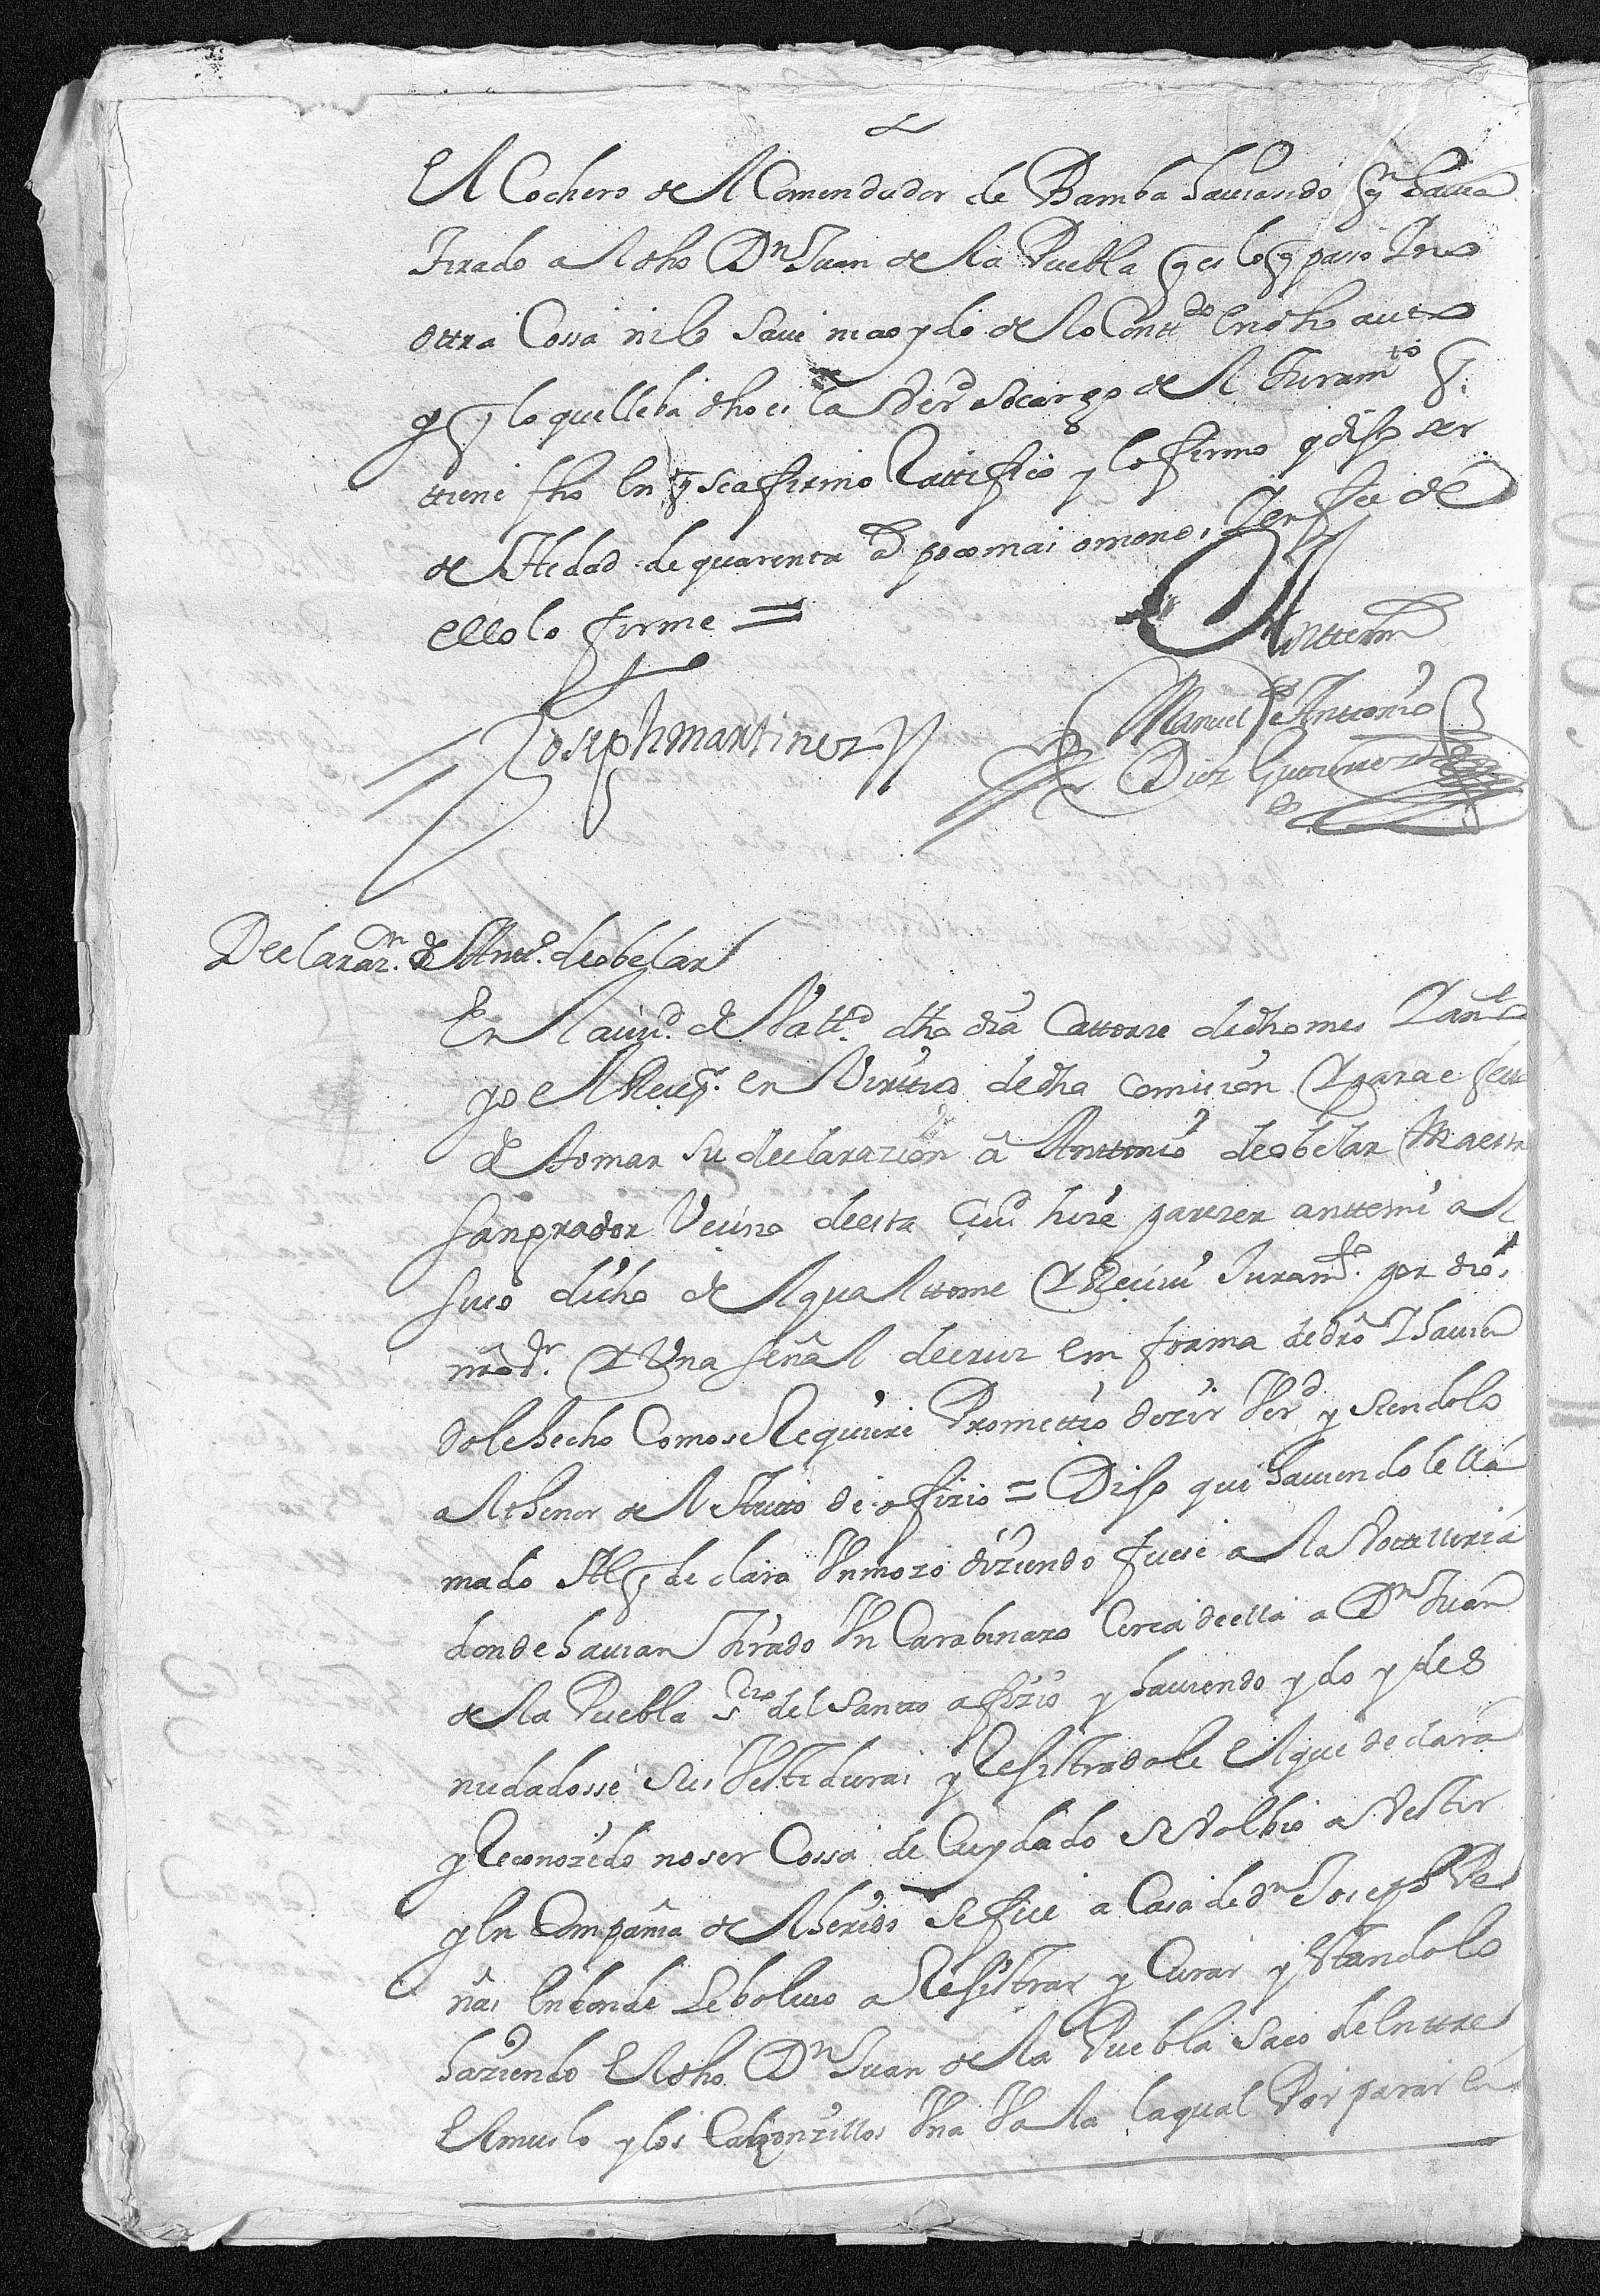 El Cochero del Comendador de Bamba havisando q.n havia
tirado al dho D.n Juan de la Puebla q es lo q paso Y no
ottra Cossa ni lo save ni a oydo de lo Cont.do en dho auto
y q lo que lleba dho es la Verd socargo del Juram.to q
tiene fho en q se affirmo Rattifico y lo firmo y dijo ser
de Hedad de quarenta a.s poco mas o menos Y en fee de
ello lo firme =
Anttemi
Joseph martinez
Manuel de Anttonio
Diez Gutierrez
Declaraz.on de Antt.o de obelar
En la ciu.d de Vall.d dho dia Cattorze de dho mes Y año
yo el Rezep.r en Virttud de dha comision Y para efectto
de tomar su declarazion a Anttonio de obelar Maestro
sangrador Vecino de esta Ciu.d hize parezer antte mi al
suso dicho del qual ttome Y Recivi Juram.to por dios
nro s.r Y Una señal de cruz em forma de dro Y havien
dole hecho Como se Requiere Promettio dezir Ver.d y siendolo
al thenor del Autto de offizio = Dijo que haviendole lla
mado Al q declara Un mozo diziendo fuese a la Votilleria
donde havian tirado Un Carabinazo Cerca de ella a D.n Juan
de la Puebla S.rio del Santo offizio y haviendo ydo y des
nudadosse sus Vestiduras y Resistradole El que declara
y Reconozido no ser Cossa de Cuydado se Volbio a Vestir
y en Compañia del herido se fue a Casa de d.n Joseph Pe
ñas en donde le bolvio a Resistrar y Curar y Estandolo
haziendo El dho D.n Juan de la Puebla saco de Enttre
El muslo y los Calzonzillos Una Vala la qual Por parar en